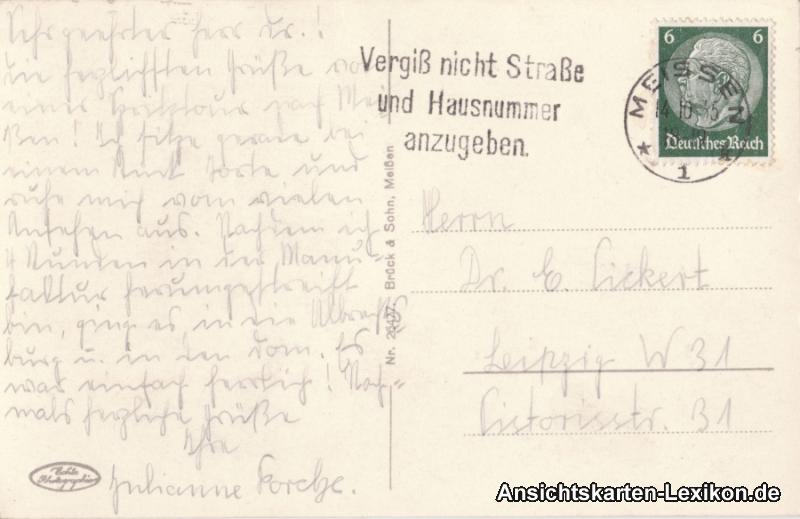 Sehr geehrter Herr Dr.!
die herzlichsten Grüße von
einer nach Mei
ßen! Ich sitze gerade bei
einem Stück Torte und
ruhe mich vom vielen
Ansehen aus. Nachdem ich
4 Stunden in der Manu-
faktur herumgestreift
bin, ging es in die Albrechts
burg u. in den Dom. Es
war einfach herrlich! Noch-
mals herzliche Grüße
Ihre
Julianne
Echte
Photographie
Nr. Brück & Sohn, Meißen
Vergiß nicht Straße
und Hausnummer
anzugeben.
6 6
Deutsches Reich
MEISSEN
1
Herrn
Dr. E. Lickert
Leipzig W 31
Victoriastr. 31
Ansichtskarten-Lexikon.de